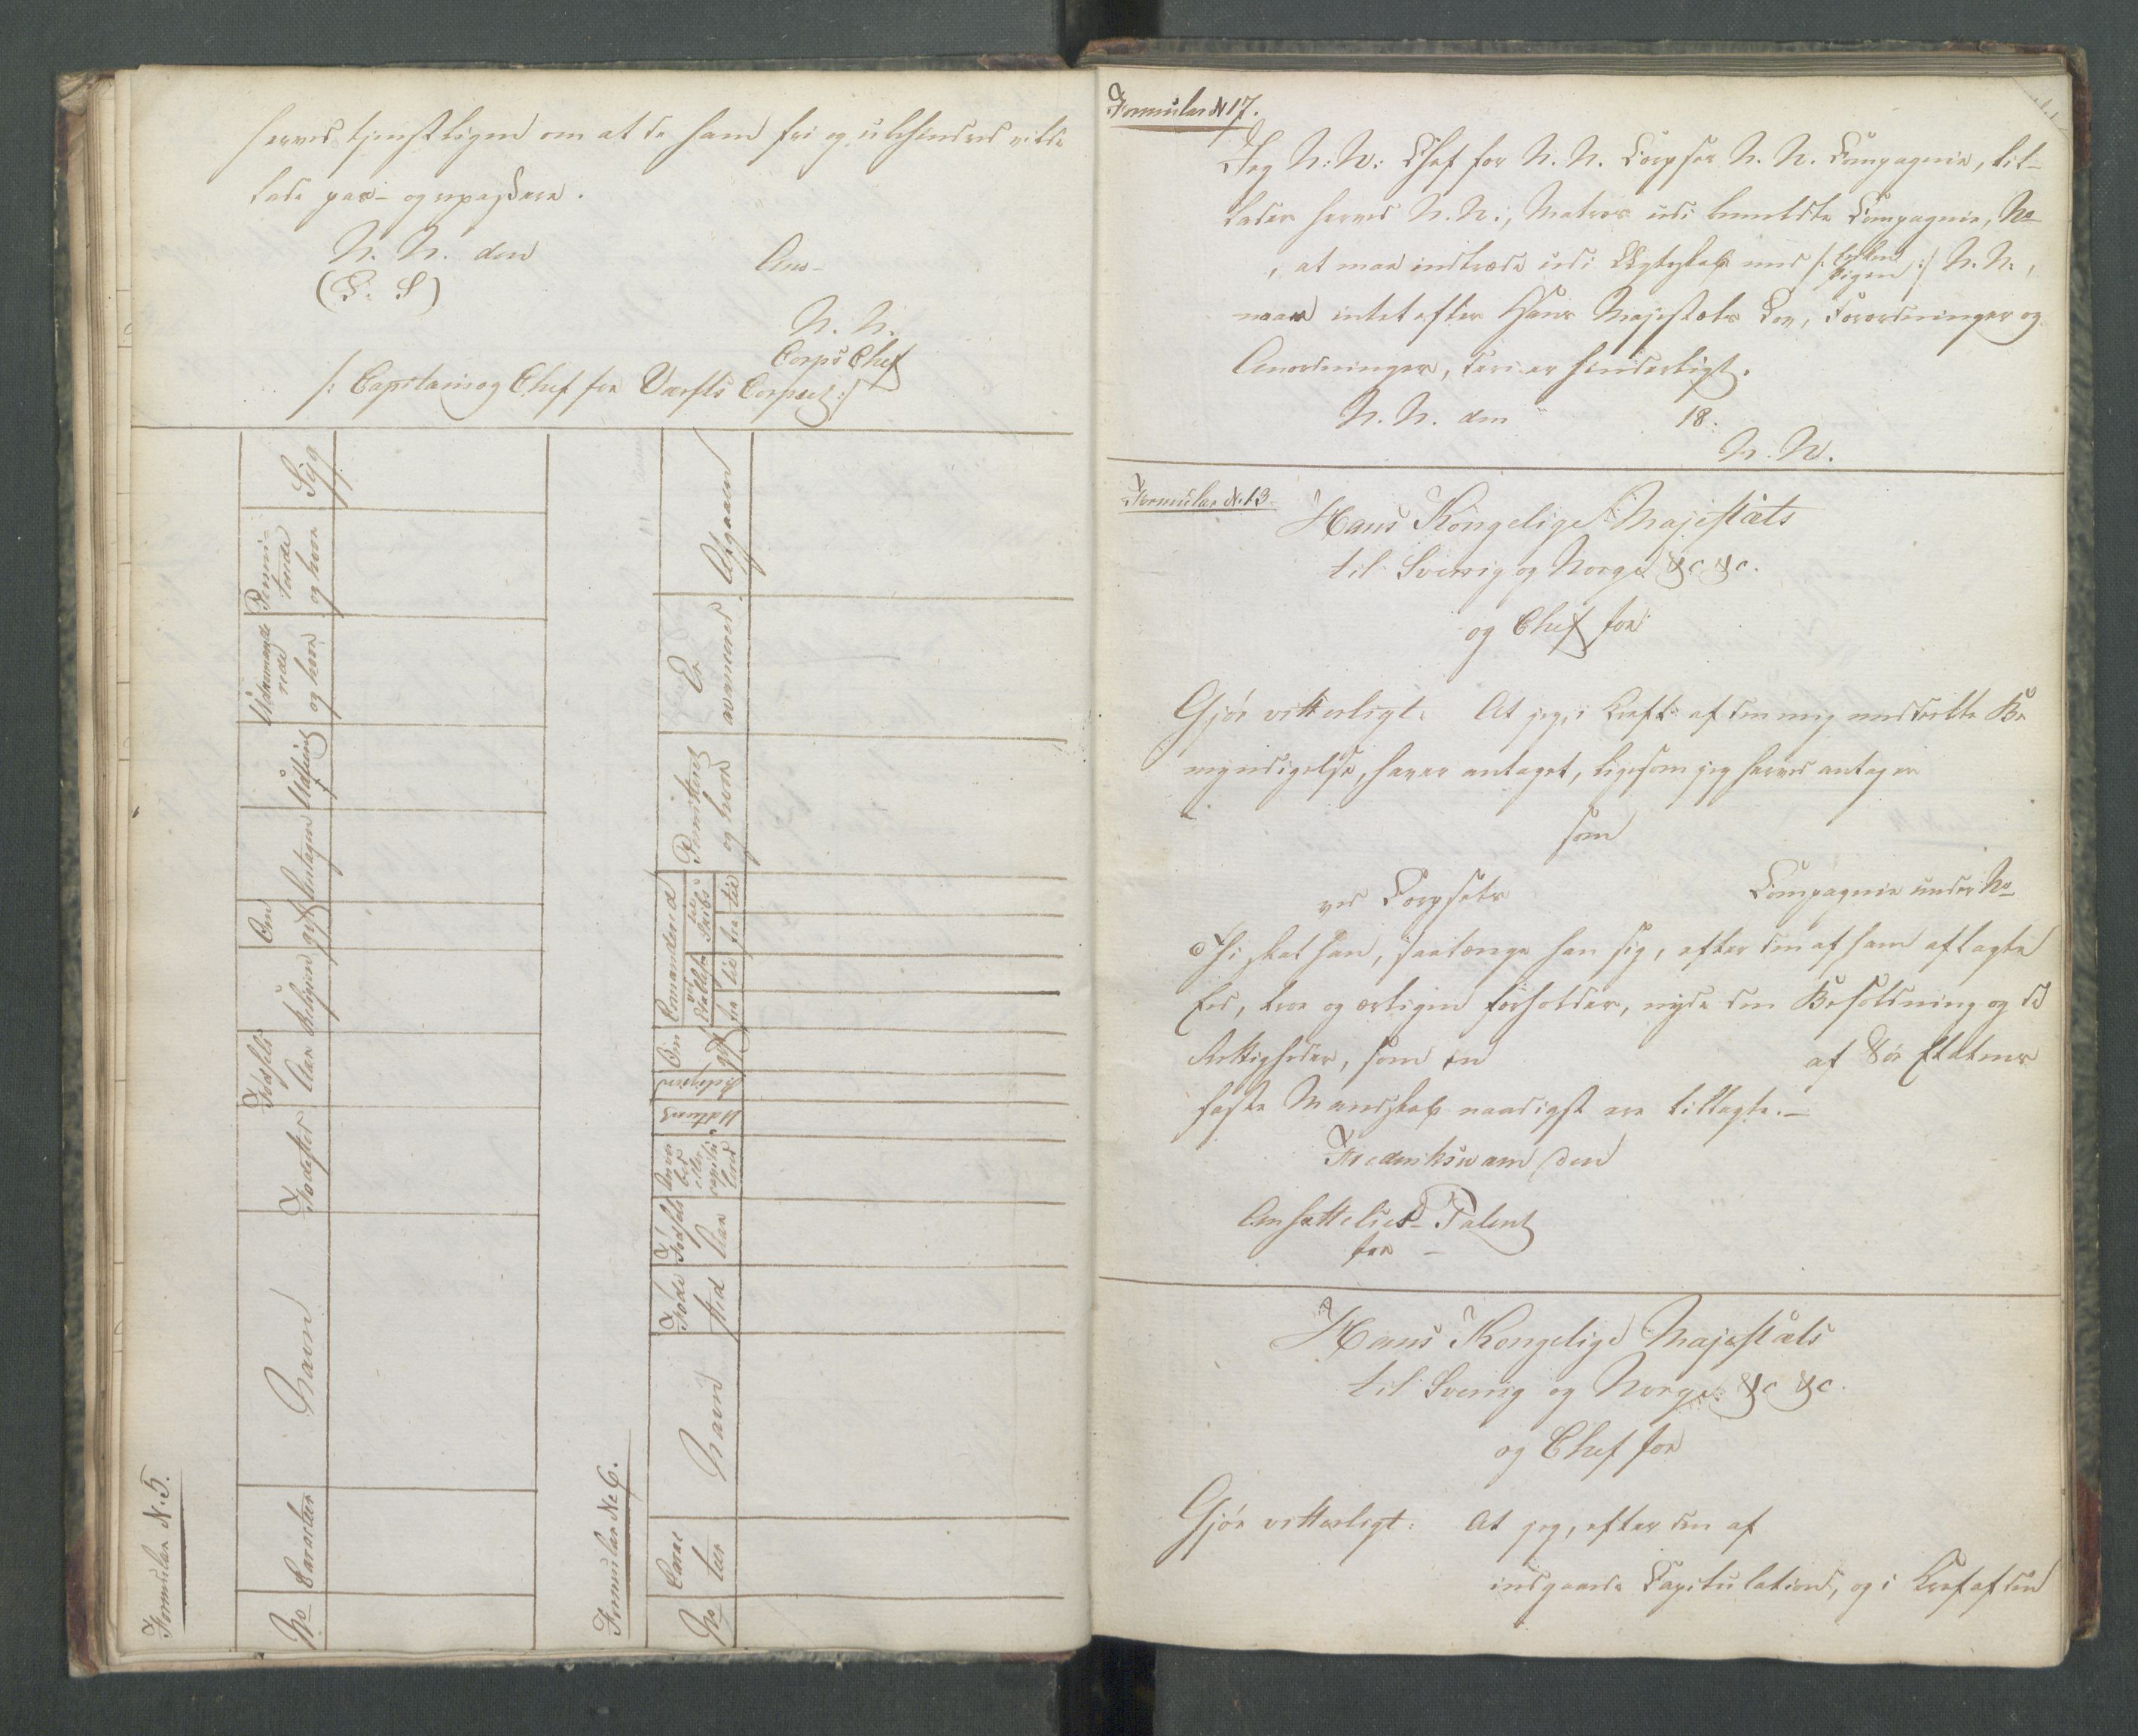 herved tjenstligen om at de ham fri og ubehindred vilde
lade pas- og repassere.
N. N. den Ano-
(L. S)
N. N.
Corps Chef
/: Captain og Chef for Værfts Corpset :/
Formular N. 5.
No
Caracteer
Navn
Fødested
Fødsels Aar
Religion
Om gift
Antagen
Udtient
Udkommanderede og hvor
Permitterede og hvor
Syg
Formular No 6.
No
Caracteer
Navn
Føde sted
Fødsels Aar
Hverved eller capituleret
Udtient
Religion
Om gift
Comanderet
fra til
fra til
Permitteret og hvor
Er avanceret
Afgaaen
Formular N 17.
Jeg N: N: Chef for N. N. Corpses N. N. Compagnie, til-
lader herved N. N:, Matros udi bemeldte Compagnie, No
, at maa indtræde udi Ægteskab med /: Enken Pigen :/ N. N.,
naar intet efter Hans Majestæts Lov, Forordninger og
Anordninger, deri er hinderligt.
N. N. den 18.
N. N.
Formular N. 13
Hans Kongelige Majestæts
til Sverrig og Norge &c &c.
og Chef for
Gjör vitterligt: At jeg, i Kraft af den mig meddeelte Be
myndigelse, haver antaget, ligesom jeg herved antager
som
ved Corpsets Compagnie under No
Thi skal han, saalænge han sig, efter den af ham aflagte
Eed, troe og ærligen forholder, nyde den Besoldning og de
Rettigheder, som en af Söe Etatens
faste Mandskab naadigst ere tillagte.-
Frederiksværn den
Ansættelses-Patent
for -
Hans Kongelige Majestæts
til Sverrig og Norge &c &c.
og Chef for
Gjör vitterligt: At jeg, efter den af
indgaaede Capitulation, og i Kraft af den